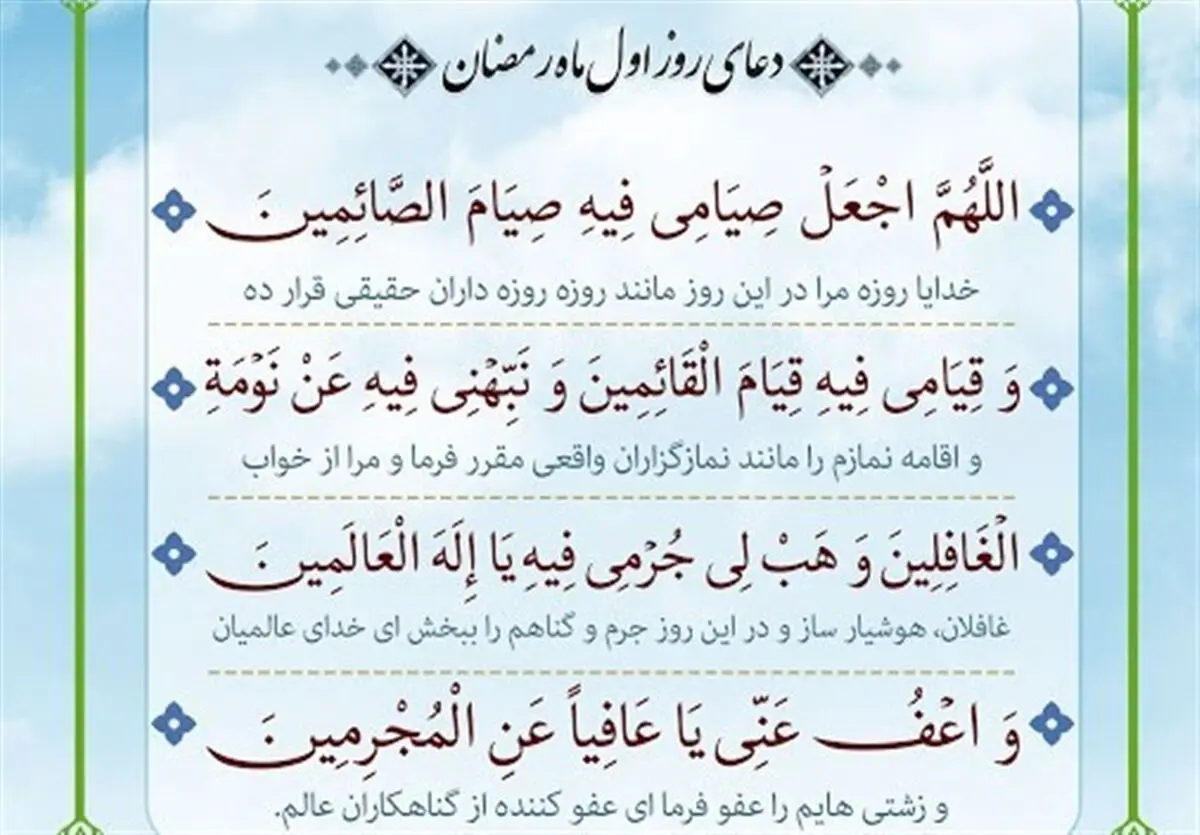 دعای روز اول ماه رمضان
اللَّهُمَّ اجْعَلْ صِيَامِی فِيهِ صِيَامَ الصَّائِمِينَ
خدایا روزه مرا در این روز مانند روزه روزه داران حقیقی قرار ده
وَ قِيَامِی فِيهِ قِيَامَ الْقَائِمِينَ وَ نَبِّهْنِی فِيهِ عَنْ نَوْمَةِ
و اقامه نمازم را مانند نمازگزاران واقعی مقرر فرما و مرا از خواب
الْغَافِلِينَ وَ هَبْ لِی جُرْمِی فِيهِ يَا إِلَهَ الْعَالَمِينَ
غافلان، هوشیار ساز و در این روز جرم و گناهم را ببخش ای خدای عالمیان
وَ اعْفُ عَنِّی يَا عَافِياً عَنِ الْمُجْرِمِينَ
و زشتی هایم را عفو فرما ای عفو کننده از گناهکاران عالم.